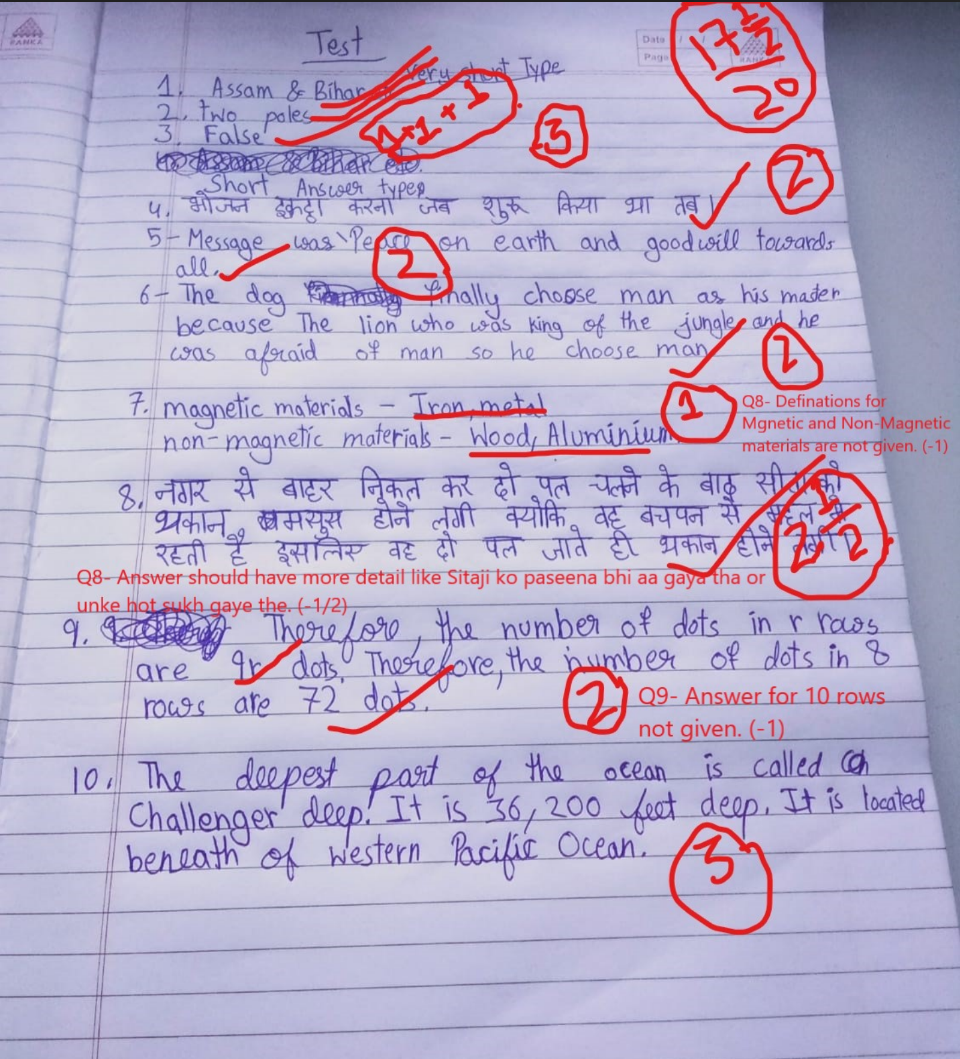 PANKA
Test
Date / /
Page
17 1/2
20
very short Type
1. Assam & Bihar
2. two poles
3. False
1+1+1
3
Short Answer types
2
4. भोजन इकट्ठा करना जब शुरू किया था तब।
5- Message was "Peace on earth and goodwill towards
all.
2
6- The dog finally choose man as his master
because The lion who was king of the jungle and he
was afraid of man so he choose man
2
7. magnetic materials - Iron, metal
non-magnetic materials - Wood, Aluminium
1
Q8- Definations for
Mgnetic and Non-Magnetic
materials are not given. (-1)
8. नगर से बाहर निकल कर दो पल चलने के बाद सीता को
थकान मससूस होने लगी क्योकि वह बचपन से महल मे
रहती है इसलिस वह दो पल जाते ही थकान होने लगी।
2 1/2
Q8- Answer should have more detail like Sitaji ko paseena bhi aa gaya tha or
unke hot sukh gaye the. (-1/2)
9. Therefore, the number of dots in r rows
are 9r dots. Therefore, the number of dots in 8
rows are 72 dots.
2
Q9- Answer for 10 rows
not given. (-1)
10. The deepest part of the ocean is called
Challenger deep. It is 36,200 feet deep. It is located
beneath of western Pacific Ocean.
3